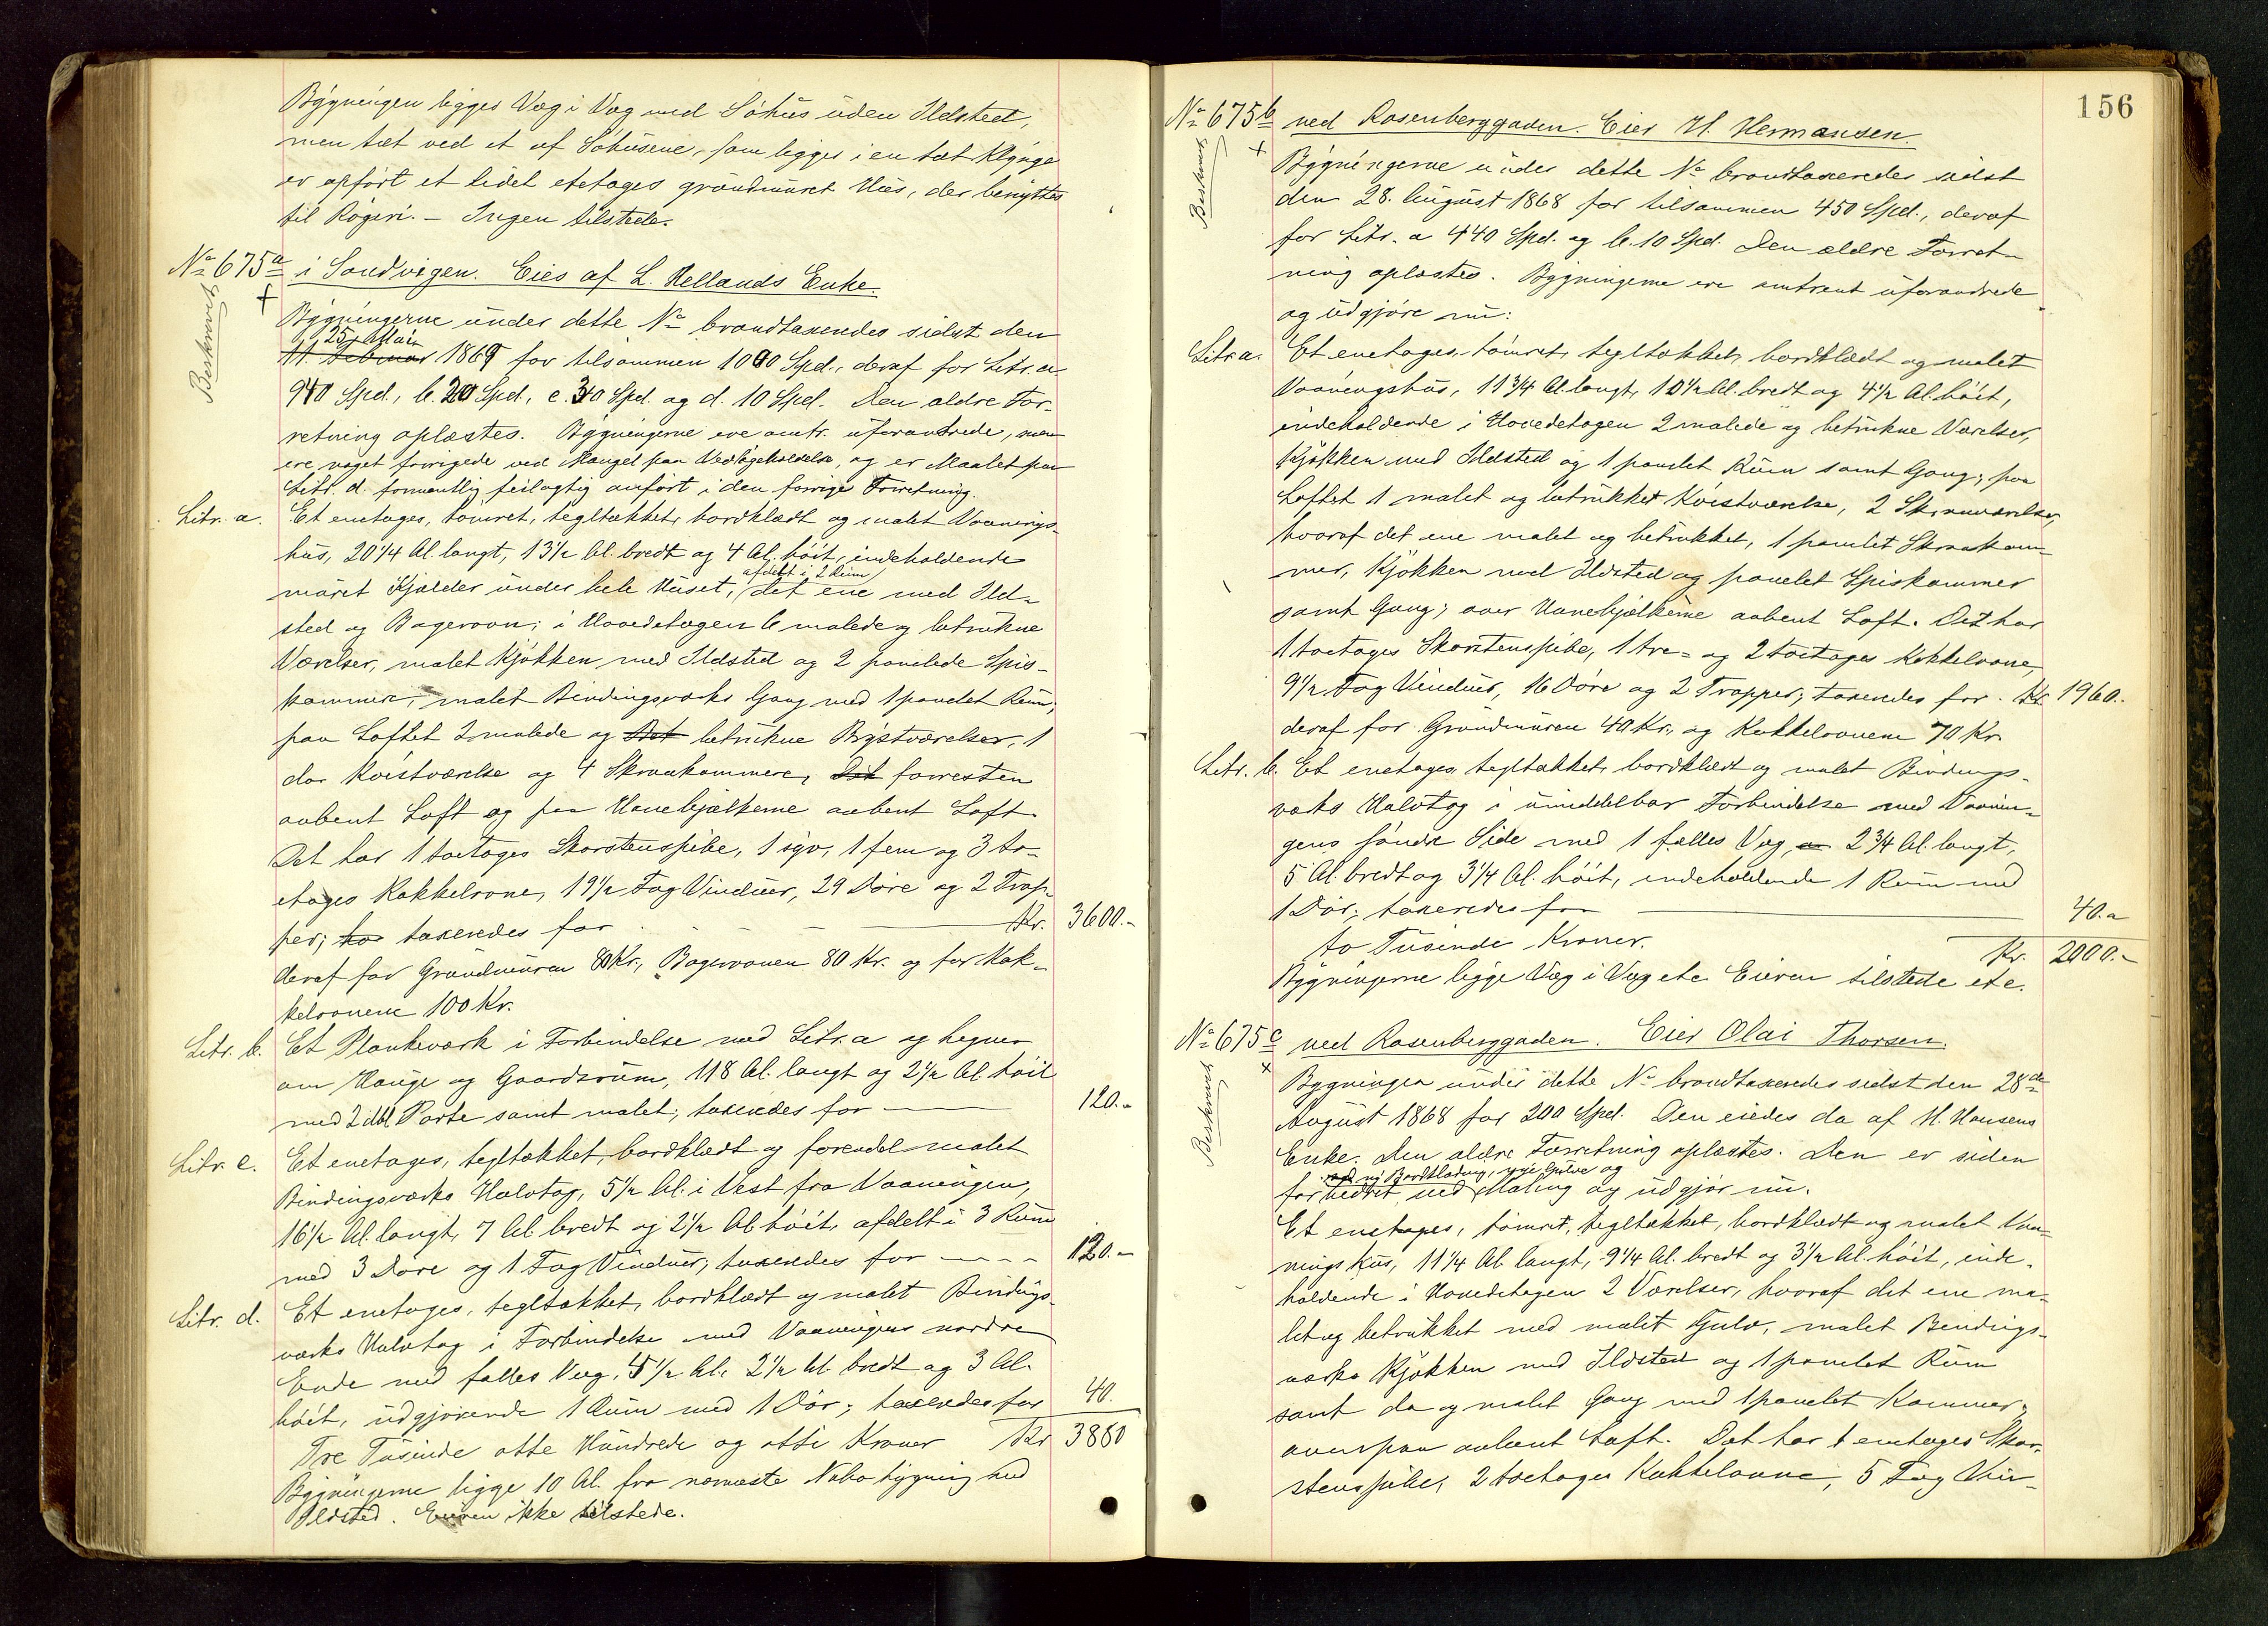 Bygningen ligges Væg i Væg med Söhus uden Ildsted,
men tæt ved et af Söhusene, som ligges i en tæt Klynge
er opfört et lidet etetages grundmuret Hus, der benyttes
til Rögeri. – Ingen tilstede.
No 675a i Sandvigen. Eies af L. Hellands Enke.
Beskrevet
Bygningerne under dette No brandtaxeredes sidst den
25 Mai
11 Februar 1869 for tilsammen 1000 Spd., deraf for Litr. a
940 Spd., b. 20 Spd., c. 30 Spd. og d. 10 Spd. Den ældre For-
retning oplæstes. Bygningerne ere omtr. uforandrede, men
ere noget forringede ved Mangel paa Vedligeholdelse, og er Maalet paa
Litr. d. formentlig feilagtig anfört i den forrige Forretning.
Litr. a. Et enetages, tömret, tegltækket, bordklædt og malet Vaanings-
hus, 20 1/4 Al. langt, 13 1/2 Al. bredt og 4 Al. höit, indeholdende
afdelt i 2 Rum
muret Kjælder under hele Huset, det ene med Ild-
sted og Bagerovn; i Hovedetagen 6 malede og betrukne
Værelser, malet Kjökken med Ildsted og 2 panelede Spis-
kammere, malet Bindingsværks Gang med 1 panelet Rum;
paa Loftet 2 malede og Det betrukne Brystværelser, 1
do. Kvistværelse og 4 Skraakammere, Det forresten
aabent Loft og paa Hanebjælkerne aabent Loft.
Det har 1 toetages Skorstenspibe, 1 syv, 1 fem og 3 to-
etages Kakkelovne, 19 1/2 Fag Vinduer, 29 Döre og 2 Trap-
per; har taxeredes for Kr. 3600.-
deraf for Grundmuren 80 Kr., Bagerovnen 80 Kr. og for Kak-
kelovnene 100 Kr.
Litr. b. Et Plankeværk i Forbindelse med Litr. a og hegner
om Hauge og Gaardsrum, 118 Al. langt og 2 1/2 Al. höit
med 2 dbl Porte samt malet; taxeredes for 120.-
Litr. c. Et enetages, tegltækket, bordklædt og forendel malet
Bindingsværks Halvtag, 5 1/2 Al. i Vest fra Vaaningen,
16 1/2 Al. langt, 7 Al. bredt og 2 1/2 Al. höit, afdelt i 3 Rum
med 3 Döre og 1 Fag Vinduer; taxeredes for 120.-
Litr. d. Et enetages, tegltækket, bordklædt og malet Bindings-
værks Halvtag i Forbindelse med Vaaningens nordre
Ende med fælles Væg, 5 1/2 Al., 2 1/2 Al. bredt og 3 Al.
höit, udgjörende 1 Rum med 1 Dör; taxeredes for 40.
Tre Tusinde otte Hundrede og otti Kroner Kr 3880
Bygningerne ligge 10 Al. fra nærmeste Nabobygning med
Ildsted. Eieren ikke tilstede.
156
No 675b ved Rosenberggaden. Eier H. Hermansen.
Beskrevet
Bygningerne under dette No brandtaxeredes sidst
den 28. August 1868 for tilsammen 450 Spd., deraf
for Litr. a 440 Spd. og b. 10 Spd. Den ældre Forret-
ning oplæstes. Bygningerne ere omtrent uforandrede
og udgjöre nu:
Litr. a. Et enetages, tömret, tegltækket, bordklædt og malet
Vaaningshus, 11 3/4 Al. langt, 10 1/2 Al. bredt og 4 1/2 Al. höit,
indeholdende i Hovedetagen 2 malede og betrukne Værelser,
Kjökken med Ildsted og 1 panelet Rum samt Gang; paa
Loftet 1 malet og betrukket Kvistværelse, 2 Skraaværelser,
hvoraf det ene malet og betrukket, 1 panelet Skraakam-
mer, Kjökken med Ildsted og panelet Spiskammer
samt Gang; over Hanebjælkerne aabent Loft. Det har
1 toetages Skorstenspibe, 1 tre- og 2 toetages Kakkelovne,
9 1/2 Fag Vinduer, 16 Döre og 2 Trapper; taxeredes for Kr. 1960.-
deraf for Grundmuren 40 Kr., og Kakkelovnene 70 Kr.
Litr. b. Et enetages, tegltækket, bordklædt og malet Bindings-
værks Halvtag i umiddelbar Forbindelse med Vaanin-
gens söndre Side med 1 fælles Væg, er 2 3/4 Al. langt,
5 Al. bredt og 3 1/4 Al. höit, indeholdende 1 Rum med
1 Dör; taxeredes for 40.-
to Tusinde Kroner. Kr. 2000.-
Bygningerne ligge Væg i Væg etc. Eieren tilstede etc.
No 675c ved Rosenberggaden. Eier Olai Thorsen.
Beskrevet
Bygningen under dette No brandtaxeredes sidst den 28de
August 1868 for 200 Spd. Den eiedes da af H. Hansens
Enke. Den ældre Forretning oplæstes. Den er siden
med ny Bordklædning, nye Gulve og
forbedret med Maling og udgjör nu.
Et enetages, tömret, tegltækket, bordklædt og malet Vaa-
ningshus, 11 1/4 Al. langt, 9 1/4 Al. bredt og 3 1/2 Al. höit, inde-
holdende i Hovedetagen 2 Værelser, hvoraf det ene ma-
let og betrukket med malet Gulv, malet Bindings-
værks Kjökken med Ildsted og 1 panelet Rum
samt do og malet Gang med 1 panelet Kammer;
ovenpaa aabent Loft. Det har 1 enetages Skor-
stenspibe, 2 toetages Kakkelovne, 5 Fag Vin-